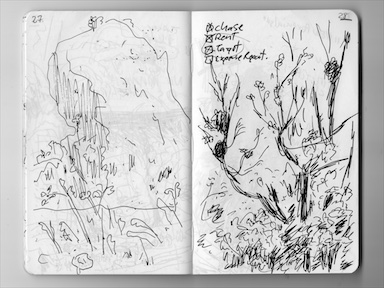 27
chase
Rent
Target
expense Report.